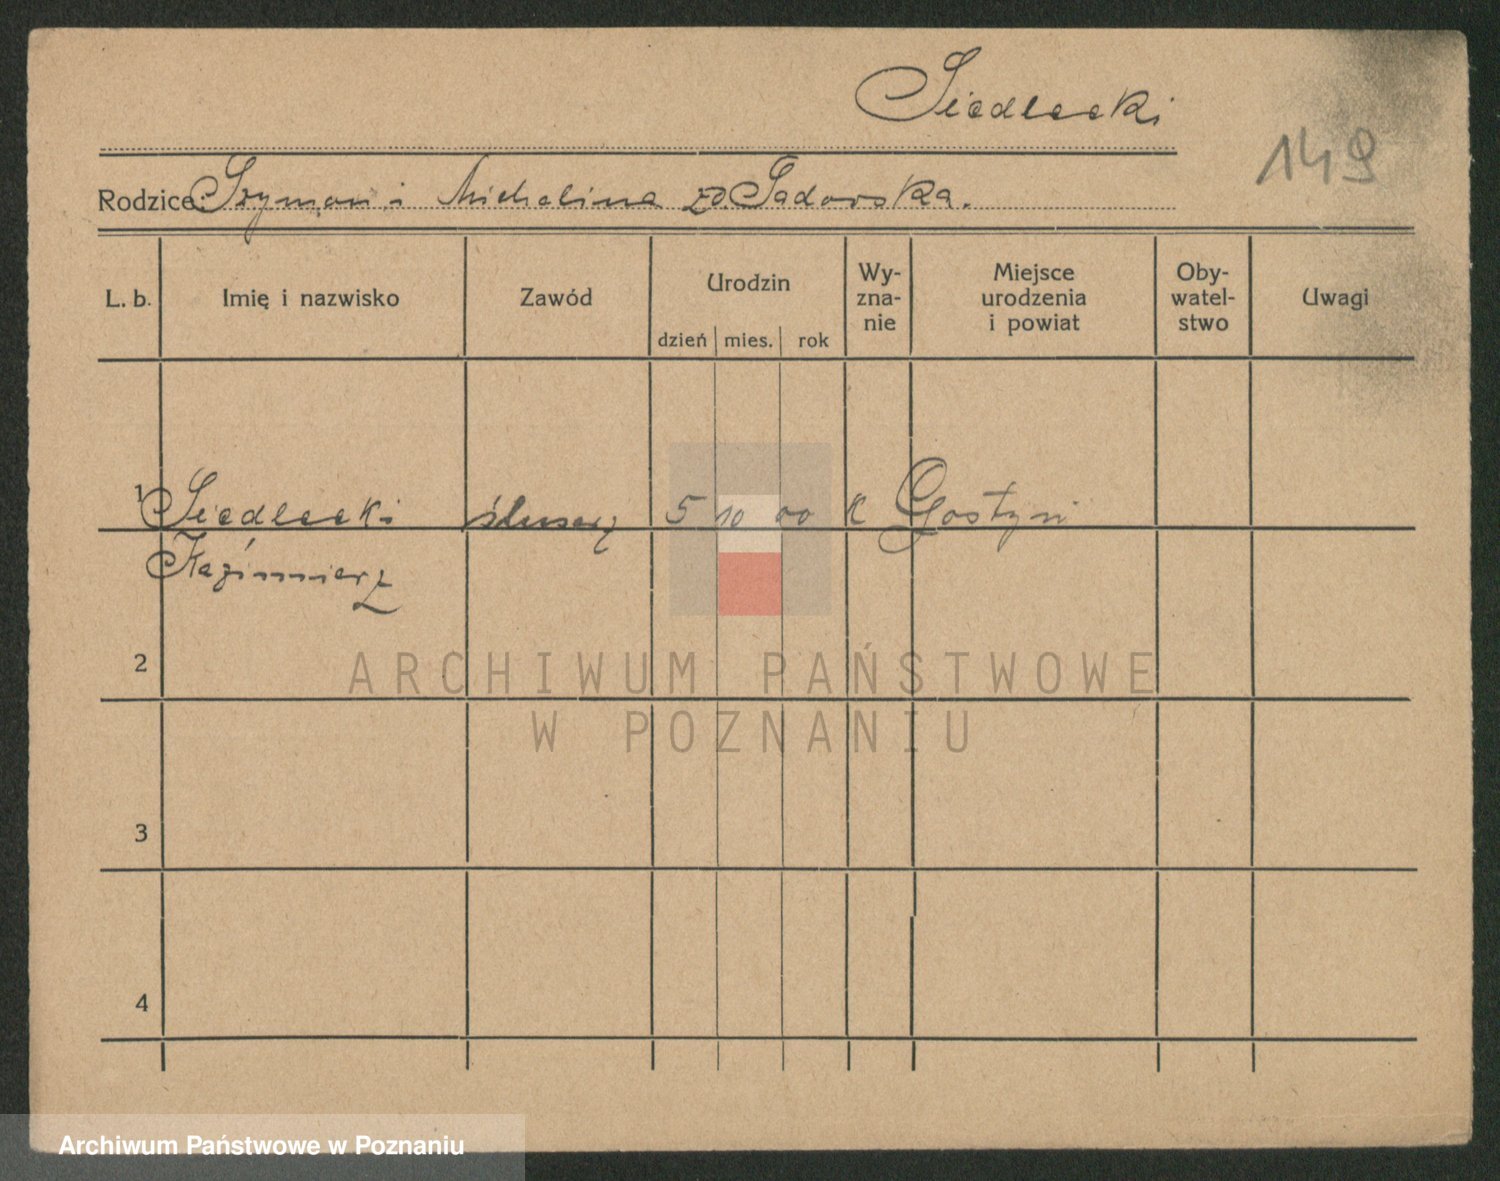 Siedlecki
149
Rodzice: Szymon i Michalina zd. Sadowska.
L. b. Imię i nazwisko Zawód Urodzin dzień mies. rok Wy-zna-nie Miejsce urodzenia i powiat Oby-watel-stwo Uwagi
1 Siedlecki ślusarz 5 10 00 k Gostyń
Kazimierz
2
ARCHIWUM PAŃSTWOWE
W POZNANIU
3
4
Archiwum Państwowe w Poznaniu